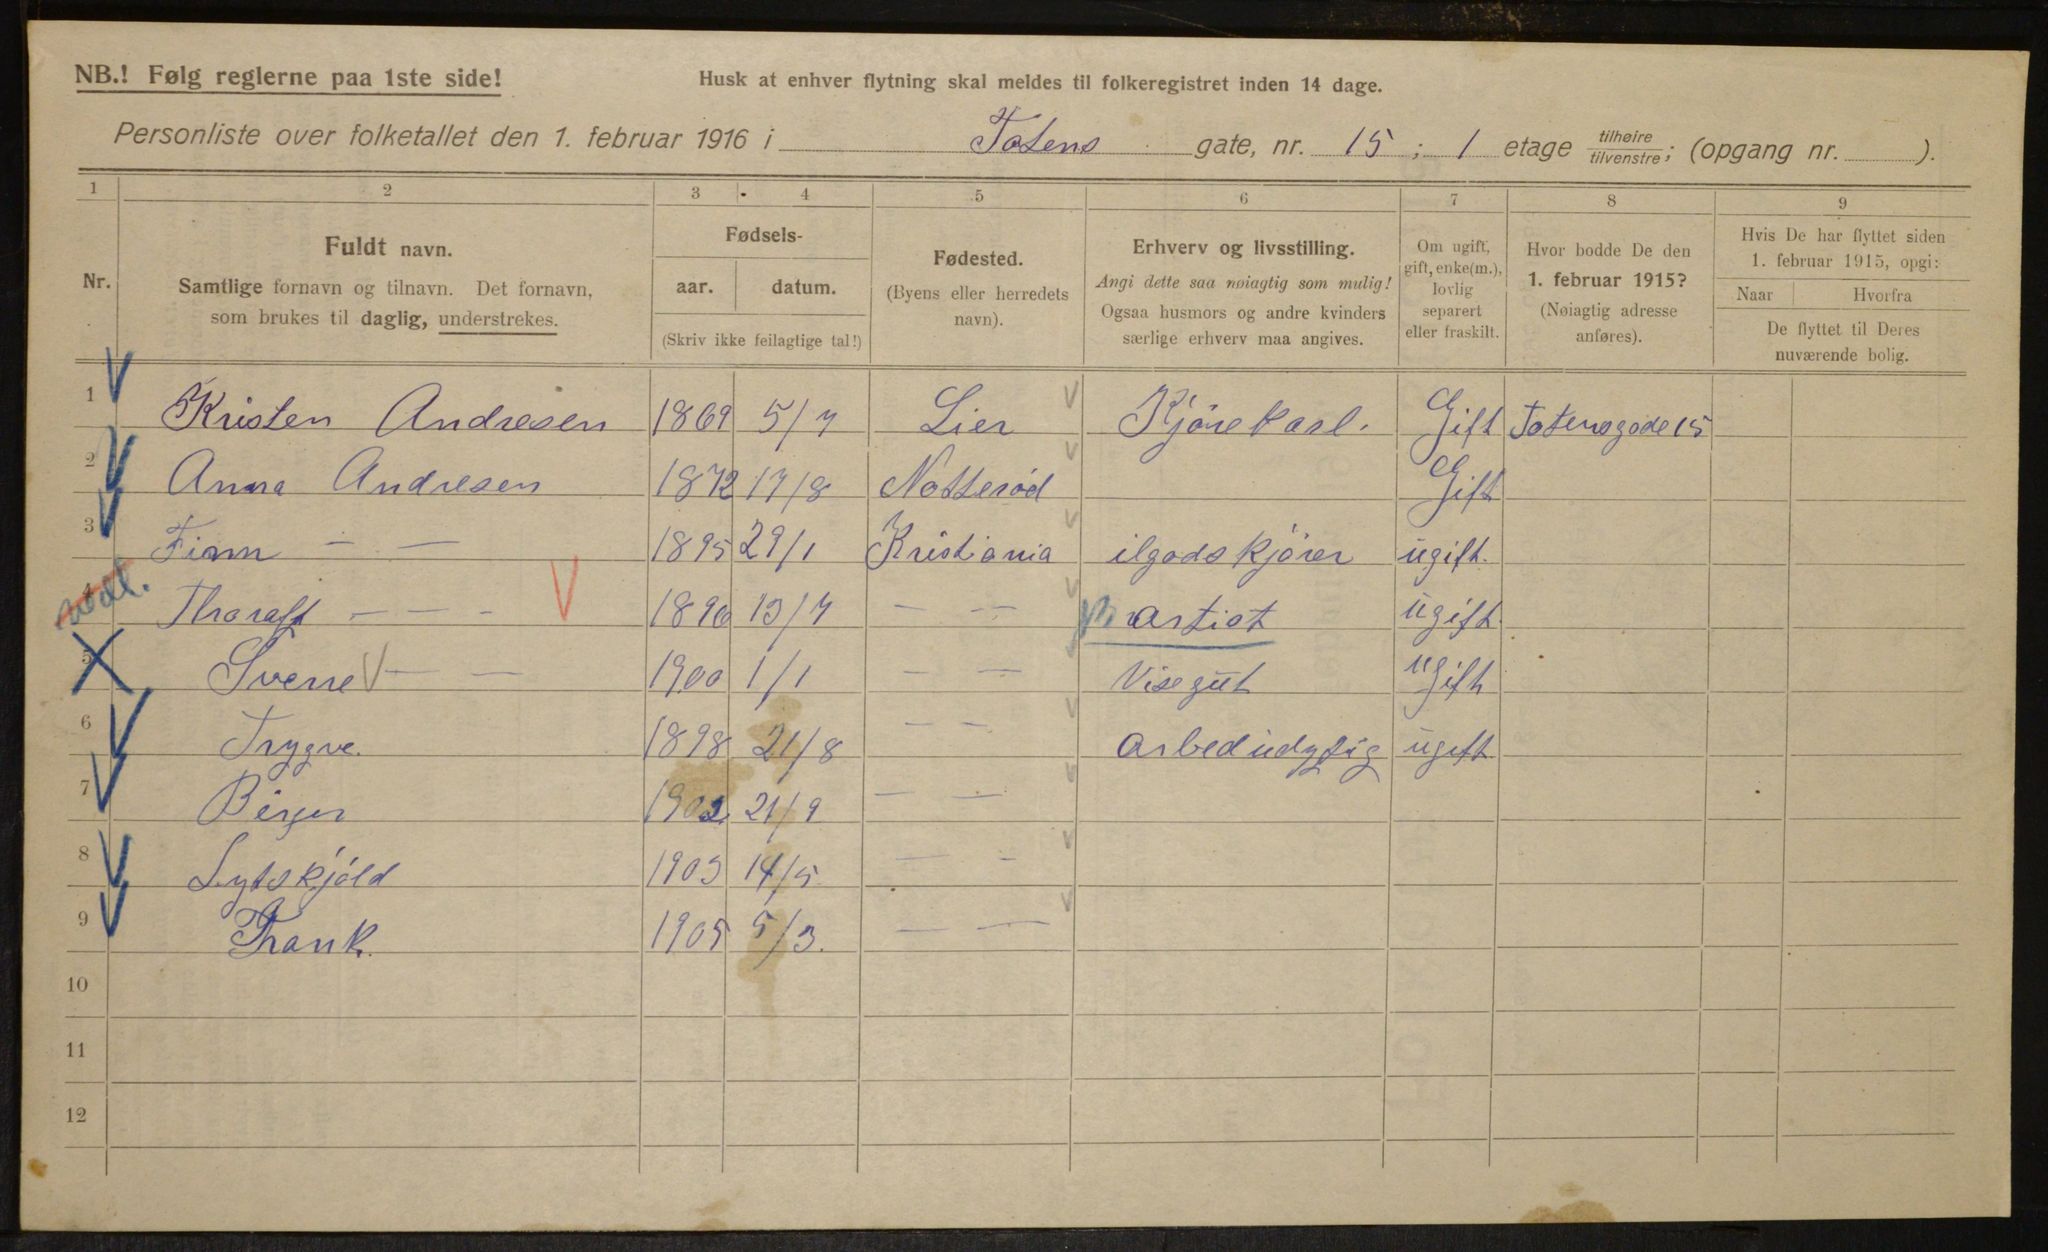 NB.! Følg reglerne paa 1ste side!
Husk at enhver flytning skal meldes til folkeregistret inden 14 dage.
Personliste over folketallet den 1. februar 1916 i Totens gate, nr. 15 ; 1 etage tilhøire/tilvenstre; (opgang nr. ).
1 2 3 4 5 6 7 8 9
Nr.
Fuldt navn.
Samtlige fornavn og tilnavn. Det fornavn,
som brukes til daglig, understrekes.
Fødsels-
aar. datum.
(Skriv ikke feilagtige tal!)
Fødested.
(Byens eller herredets
navn).
Erhverv og livsstilling.
Angi dette saa nøiagtig som mulig!
Ogsaa husmors og andre kvinders
særlige erhverv maa angives.
Om ugift,
gift, enke(m.),
lovlig
separert
eller fraskilt.
Hvor bodde De den
1. februar 1915?
(Nøiagtig adresse
anføres).
Hvis De har flyttet siden
1. februar 1915, opgi:
Naar Hvorfra
De flyttet til Deres
nuværende bolig.
1 Kristen Andresen 1869 5/7 Lier Kjørekarl. Gift Totensgade 15
2 Anna Andresen 1872 17/8 Nøtterød Gift
3 Finn — — 1895 29/1 Kristiania ilgodskjører ugift.
4 Thoralf — — - 1896 13/7 — — artist ugift.
5 Sverre — — 1900 1/1 — — Visegut ugift
6 Trygve. 1898 21/8 — — arbedudyktig ugift
7 Birger 1902 21/9 — —
8 Lytskjöld 1903 14/5. — -
9 Frank. 1905 5/3. — —
10
11
12